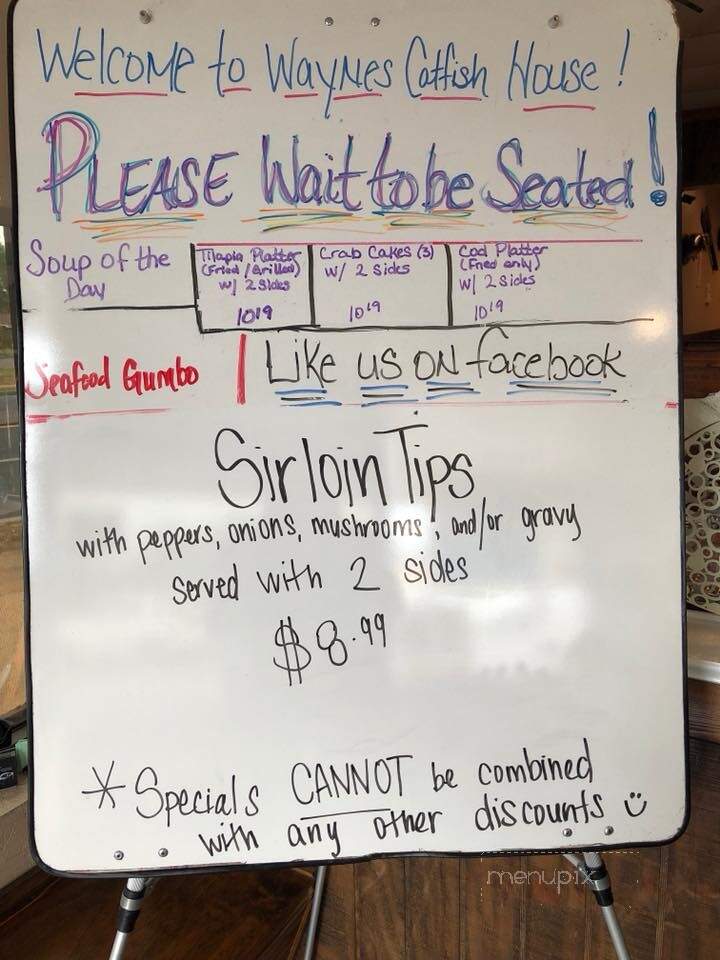 Welcome to Waynes Catfish House!
PLEASE Wait to be Seated!
Soup of the
Day
Tilapia Platter
(Fried/Grilled)
w/ 2 Sides
10¹⁹
Crab Cakes (3)
w/ 2 Sides
10¹⁹
Cod Platter
(Fried only)
w/ 2 Sides
10¹⁹
Seafood Gumbo
Like us on facebook
Sirloin Tips
with peppers, onions, mushrooms, and/or gravy
served with 2 sides
$8.99
* Specials CANNOT be combined
with any other discounts
menupix